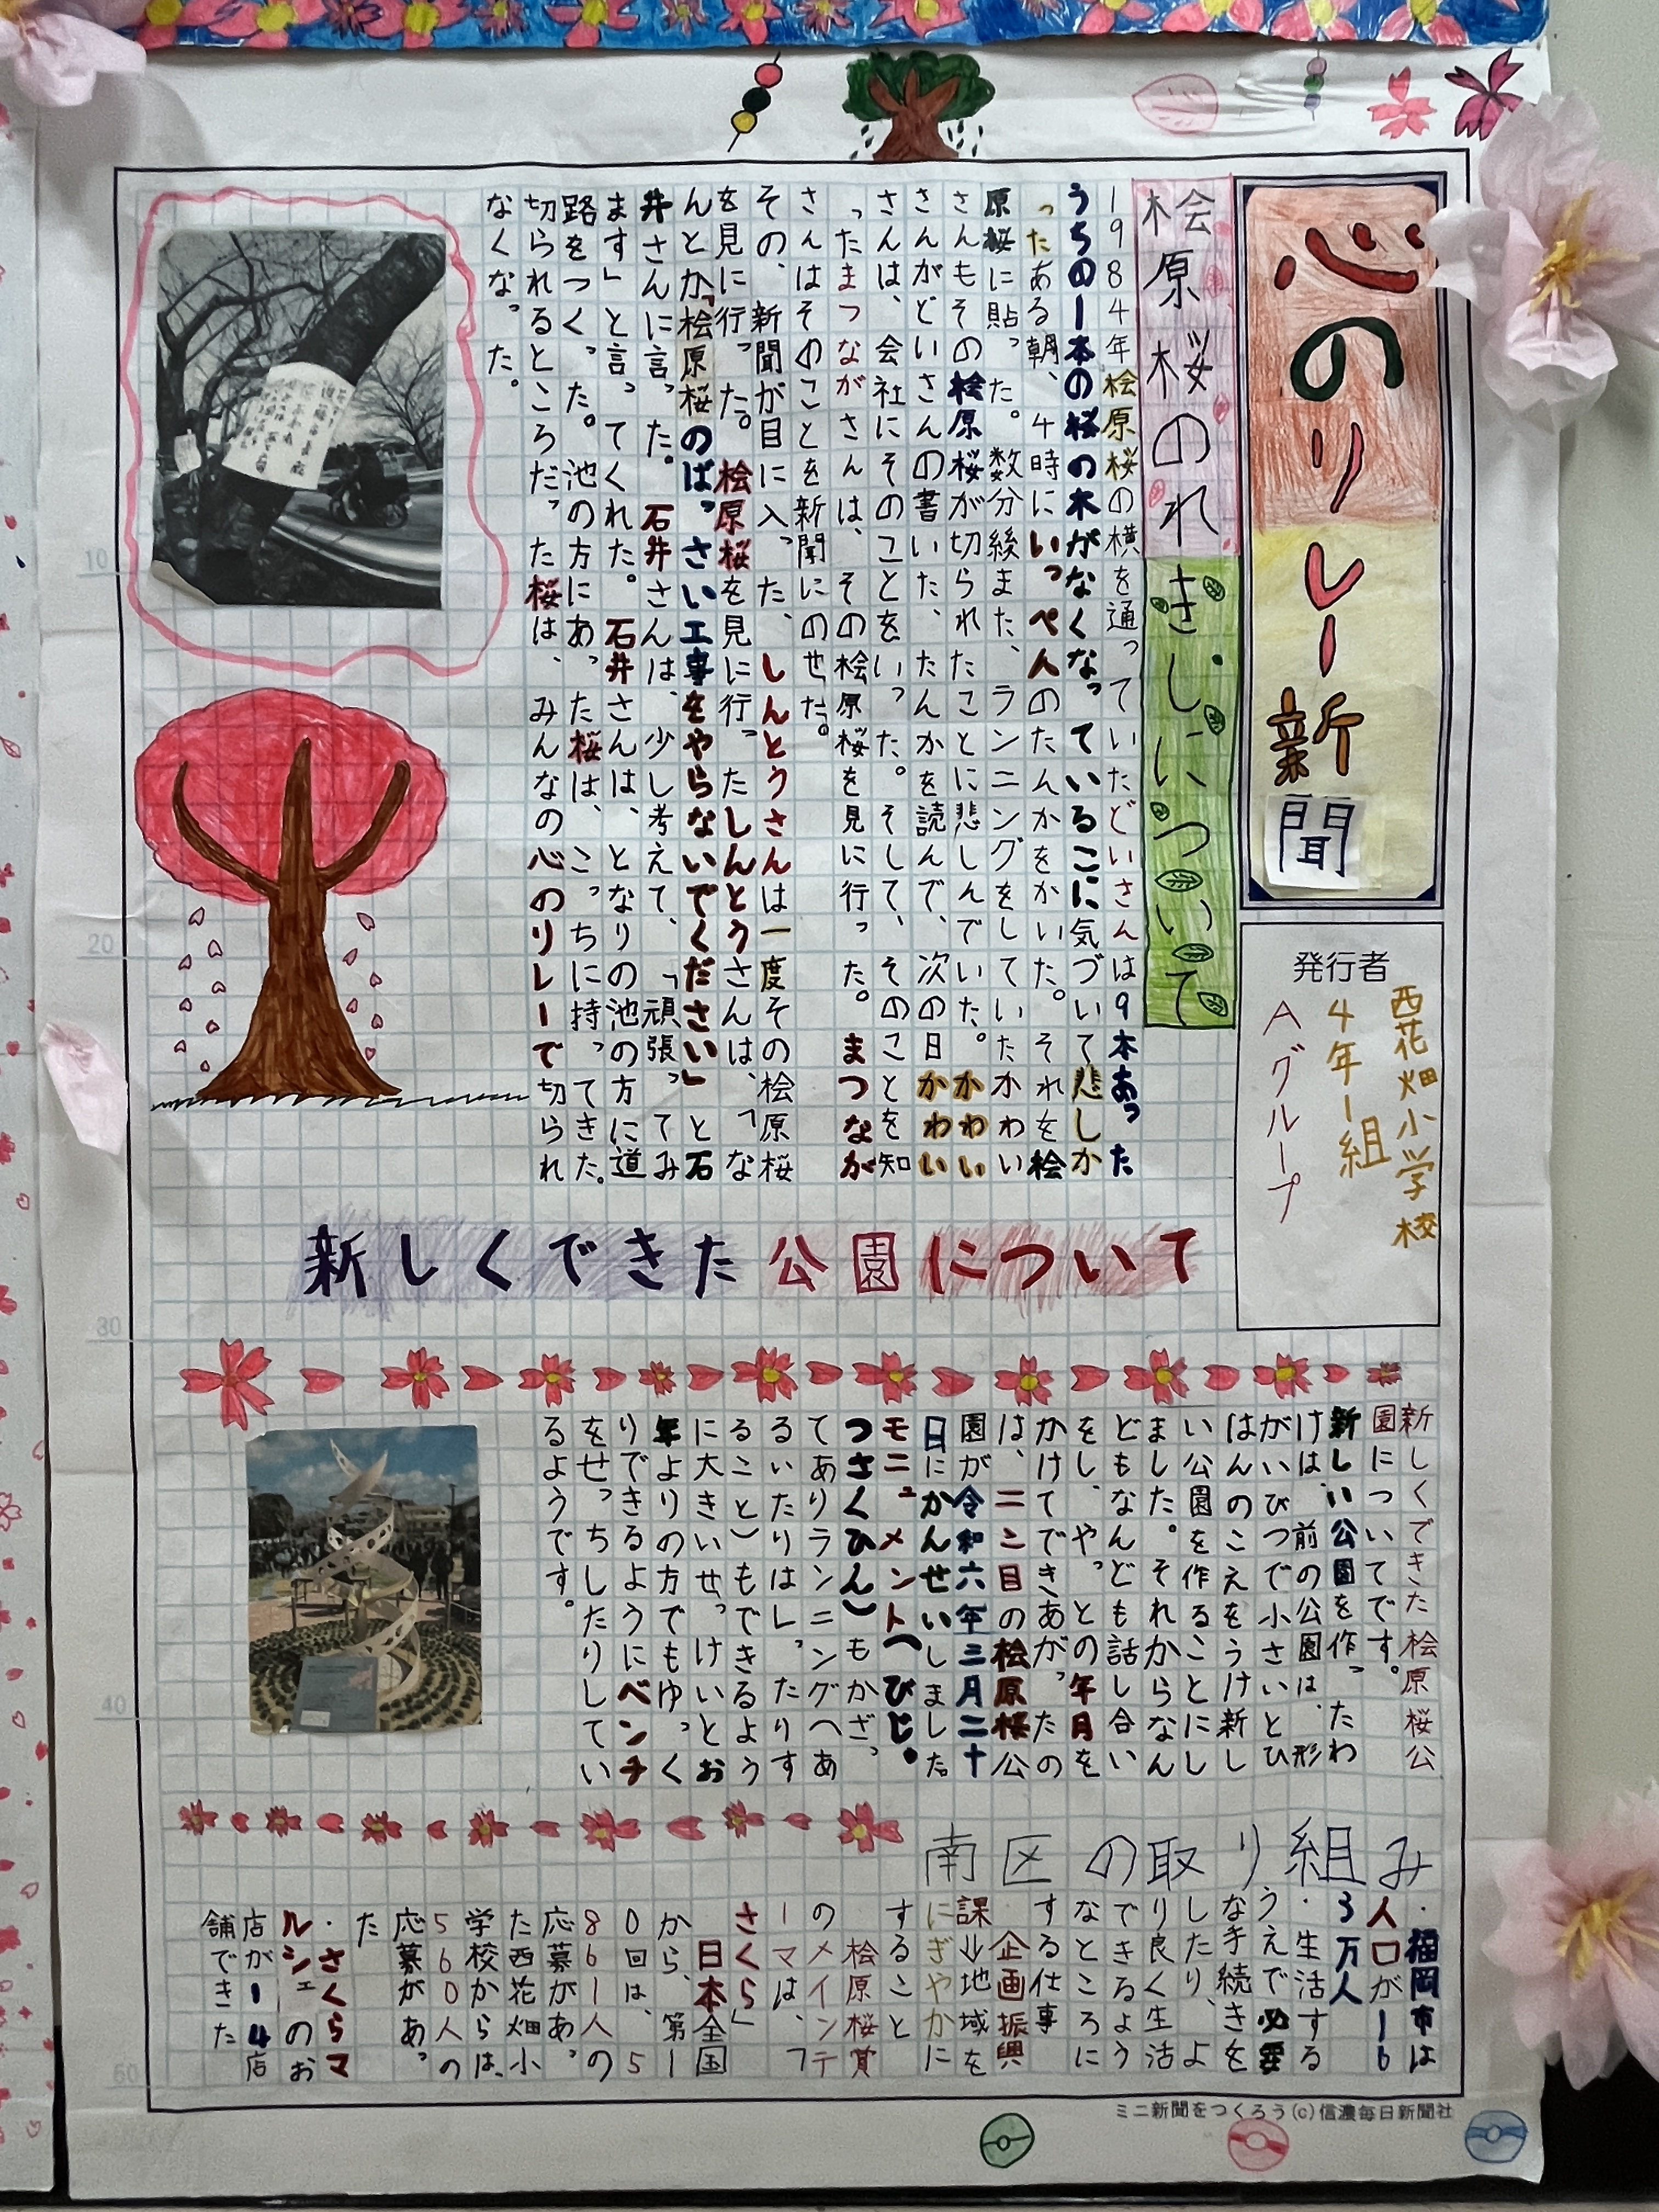 心のリレー新聞
発行者
西花畑小学校
4年1組
Aグループ
桧原桜のれきしについて
1984年桧原桜の横を通っていたどいさんは9本あった
うちの一本の桜の木がなくなっているこに気づいて悲しか
ったある朝、4時にいっぺんのたんかをかいた。それを桧
原桜に貼った。数分後また、ランニングをしていたかわい
さんもその桧原桜が切られたことに悲しんでいた。かわい
さんがどいさんの書いた、たんかを読んで、次の日かわい
さんは、会社にそのことをいった。そして、そのことを知
ったまつながさんは、その桧原桜を見に行った。まつなが
さんはそのことを新聞にのせた。
その、新聞が目に入った、しんとうさんは一度その桧原桜
を見に行った。桧原桜を見に行ったしんとうさんは、「な
んとか「桧原桜のばっさい工事をやらないでください」と石
井さんに言った。石井さんは、少し考えて、「頑張ってみ
ます」と言ってくれた。石井さんは、となりの池の方に道
路をつくった。池の方にあった桜は、こっちに持ってきた。
切られるところだった桜は、みんなの心のリレーで切られ
なくなった。
新しくできた公園について
新しくできた桧原桜公
園についてです。
新しい公園を作ったわ
けは、前の公園は、形
がいびつで小さいとひ
はんのこえをうけ新し
い公園を作ることにし
ました。それからなん
どもなんども話し合い
をし、やっとの年月を
かけてできあがったの
は、二こ目の桧原桜公
園が令和六年三月二十
日にかんせいしました。
モニュメント(びじ・
つさくひん)もかざっ
てありランニングへあ
るいたりはしったりす
ること)もできるよう
に大きいせっけいとお
年よりの方でもゆっく
りできるようにベンチ
をせっちしたりしてい
るようです。
南区の取り組み
・福岡市は
人口が16
3万人
・生活する
うえで必要
な手続きを
したり、よ
り良く生活
できるよう
なところに
する仕事
企画振興
課→地域を
にぎやかに
すること
桧原桜賞
のメインテ
ーマは、「
さくら」
日本全国
から、第1
0回は、5
861人の
応募があっ
た西花畑小
学校からは、
560人の
応募があっ
た
・さくらマ
ルシェのお
店が14店
舗できた
ミニ新聞をつくろう(c)信濃毎日新聞社
10
20
30
40
50